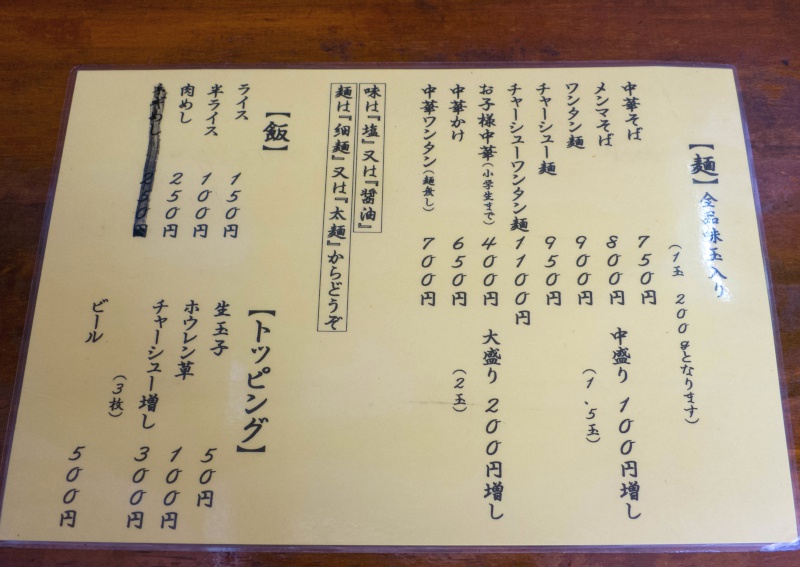 【麺】全品味玉入り
(1玉 200gとなります)
中華そば 750円
メンマそば 800円
ワンタン麺 900円
チャーシュー麺 950円
チャーシューワンタン麺 1100円
お子様中華(小学生まで) 400円
中華かけ 650円
中華ワンタン(麺無し) 700円
中盛り 100円増し
(1.5玉)
大盛り 200円増し
(2玉)
味は『塩』又は『醤油』
麺は『細麺』又は『太麺』からどうぞ
【飯】
ライス 150円
半ライス 100円
肉めし 250円
250円
【トッピング】
生玉子 50円
ホウレン草 100円
チャーシュー増し 300円
(3枚)
ビール 500円